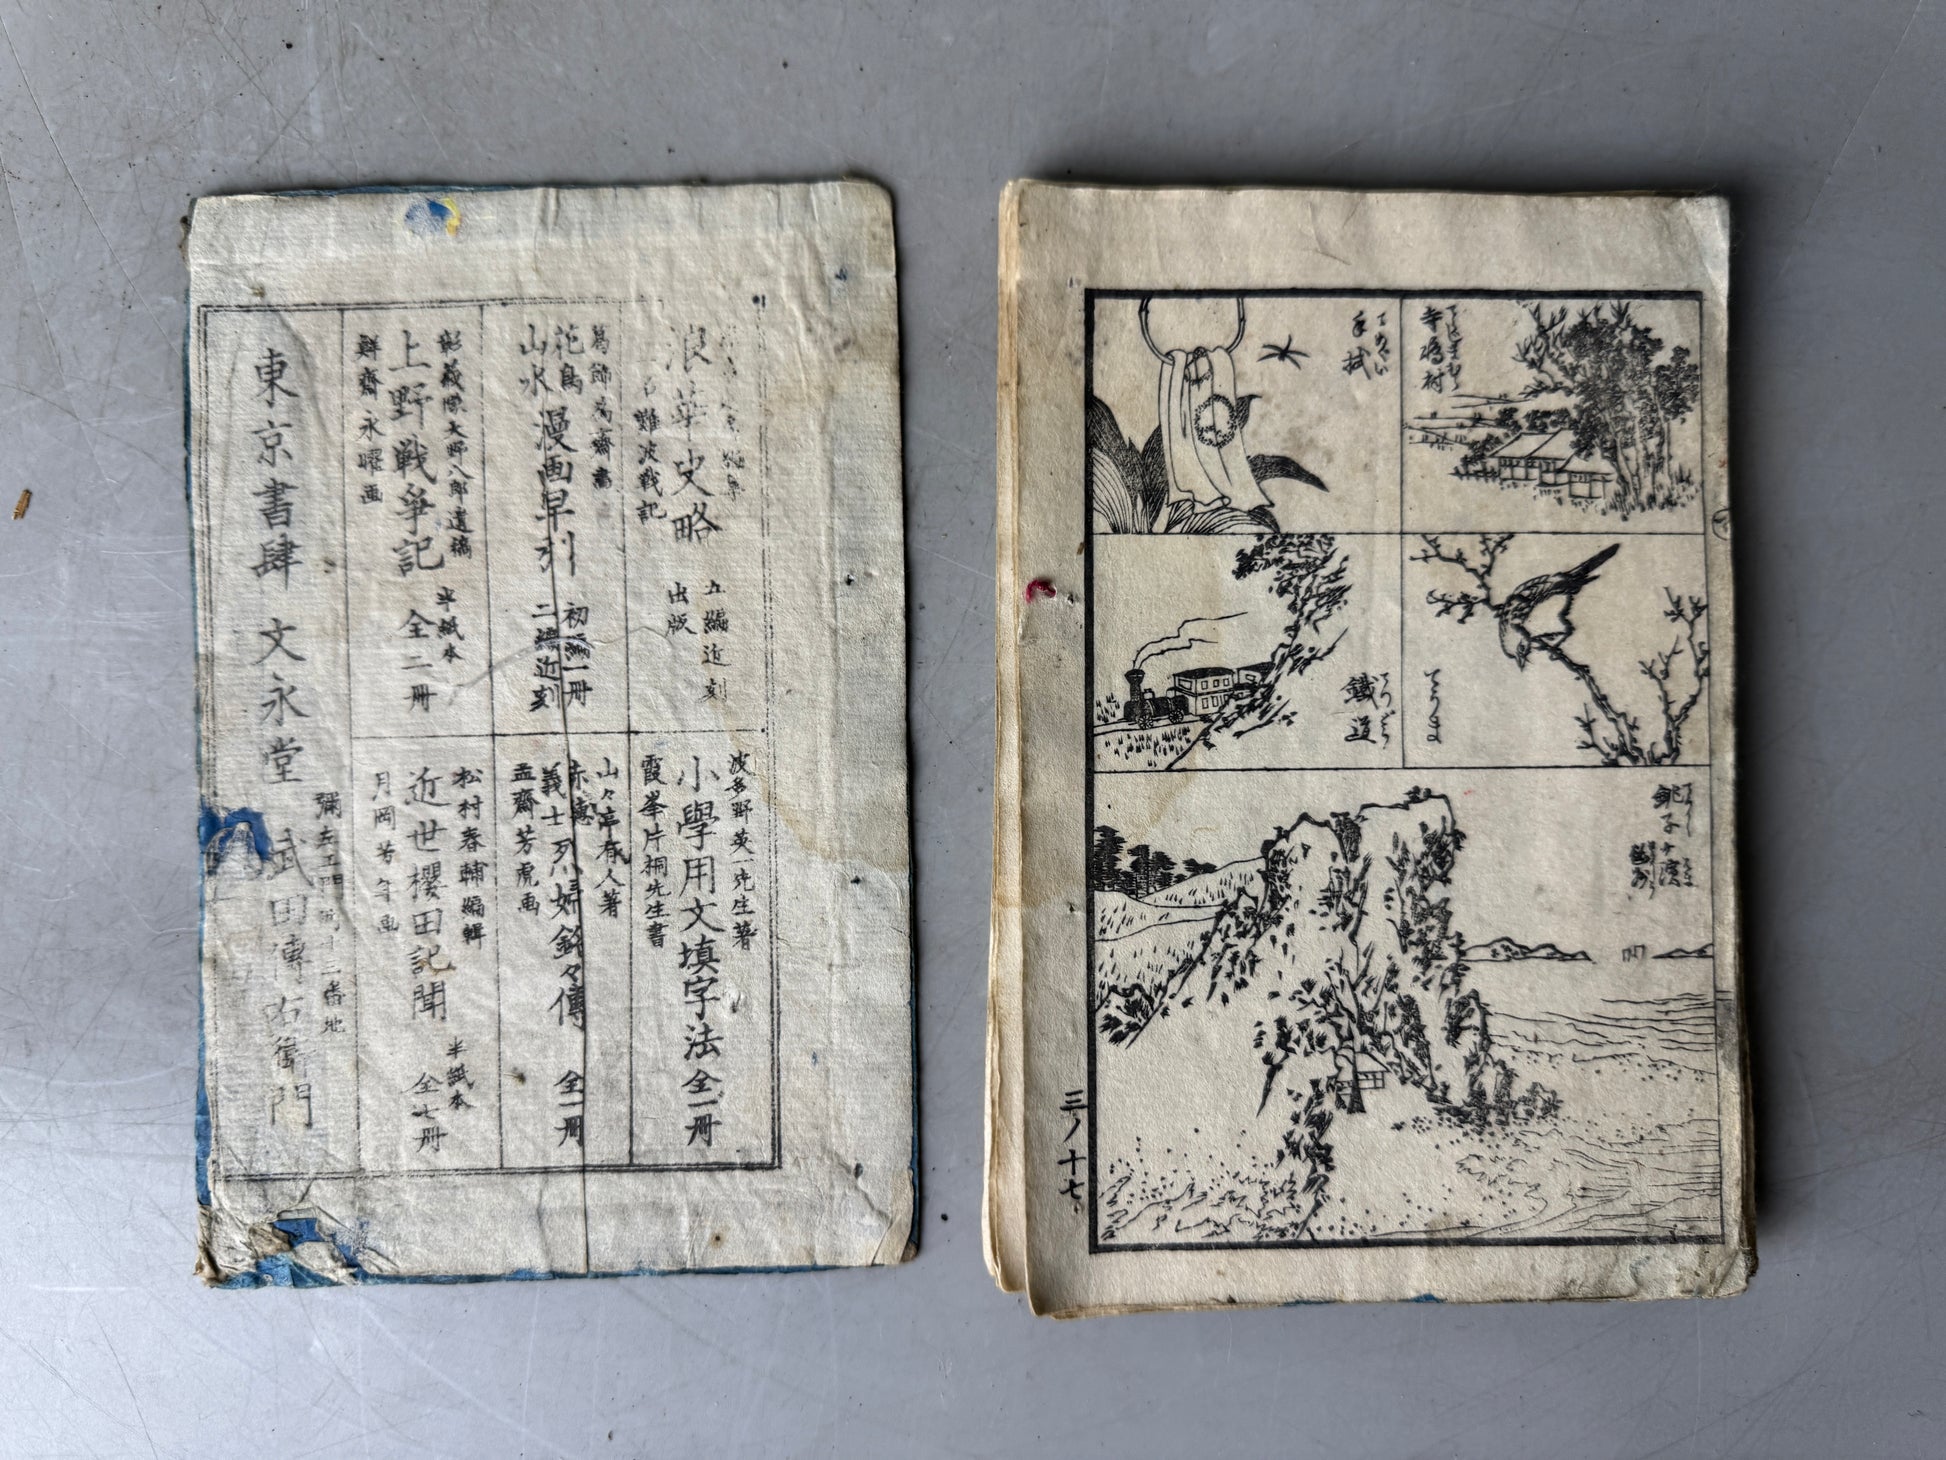 浪華史略
一名難波戦記
五編近刻
出版
葛飾為斎画
花鳥
山水
漫画早引
初編一冊
二編近刻
彰義隊大野八郎遺稿
上野戦争記
半紙本
全二冊
鮮齋永曜画
波多野英一先生著
小學用文填字法
全一冊
霞峯片桐先生書
山々亭有人著
義士烈婦銘々傳
全一冊
孟齋芳虎画
松村春輔編輯
近世櫻田記聞
半紙本
全七冊
月岡芳年画
東京書肆
文永堂
武田傳右衛門
寺嶋村
てぬぐい
手拭
てりうそ
てつどう
鐵道
てうし
銚子ヶ濱
三ノ十七